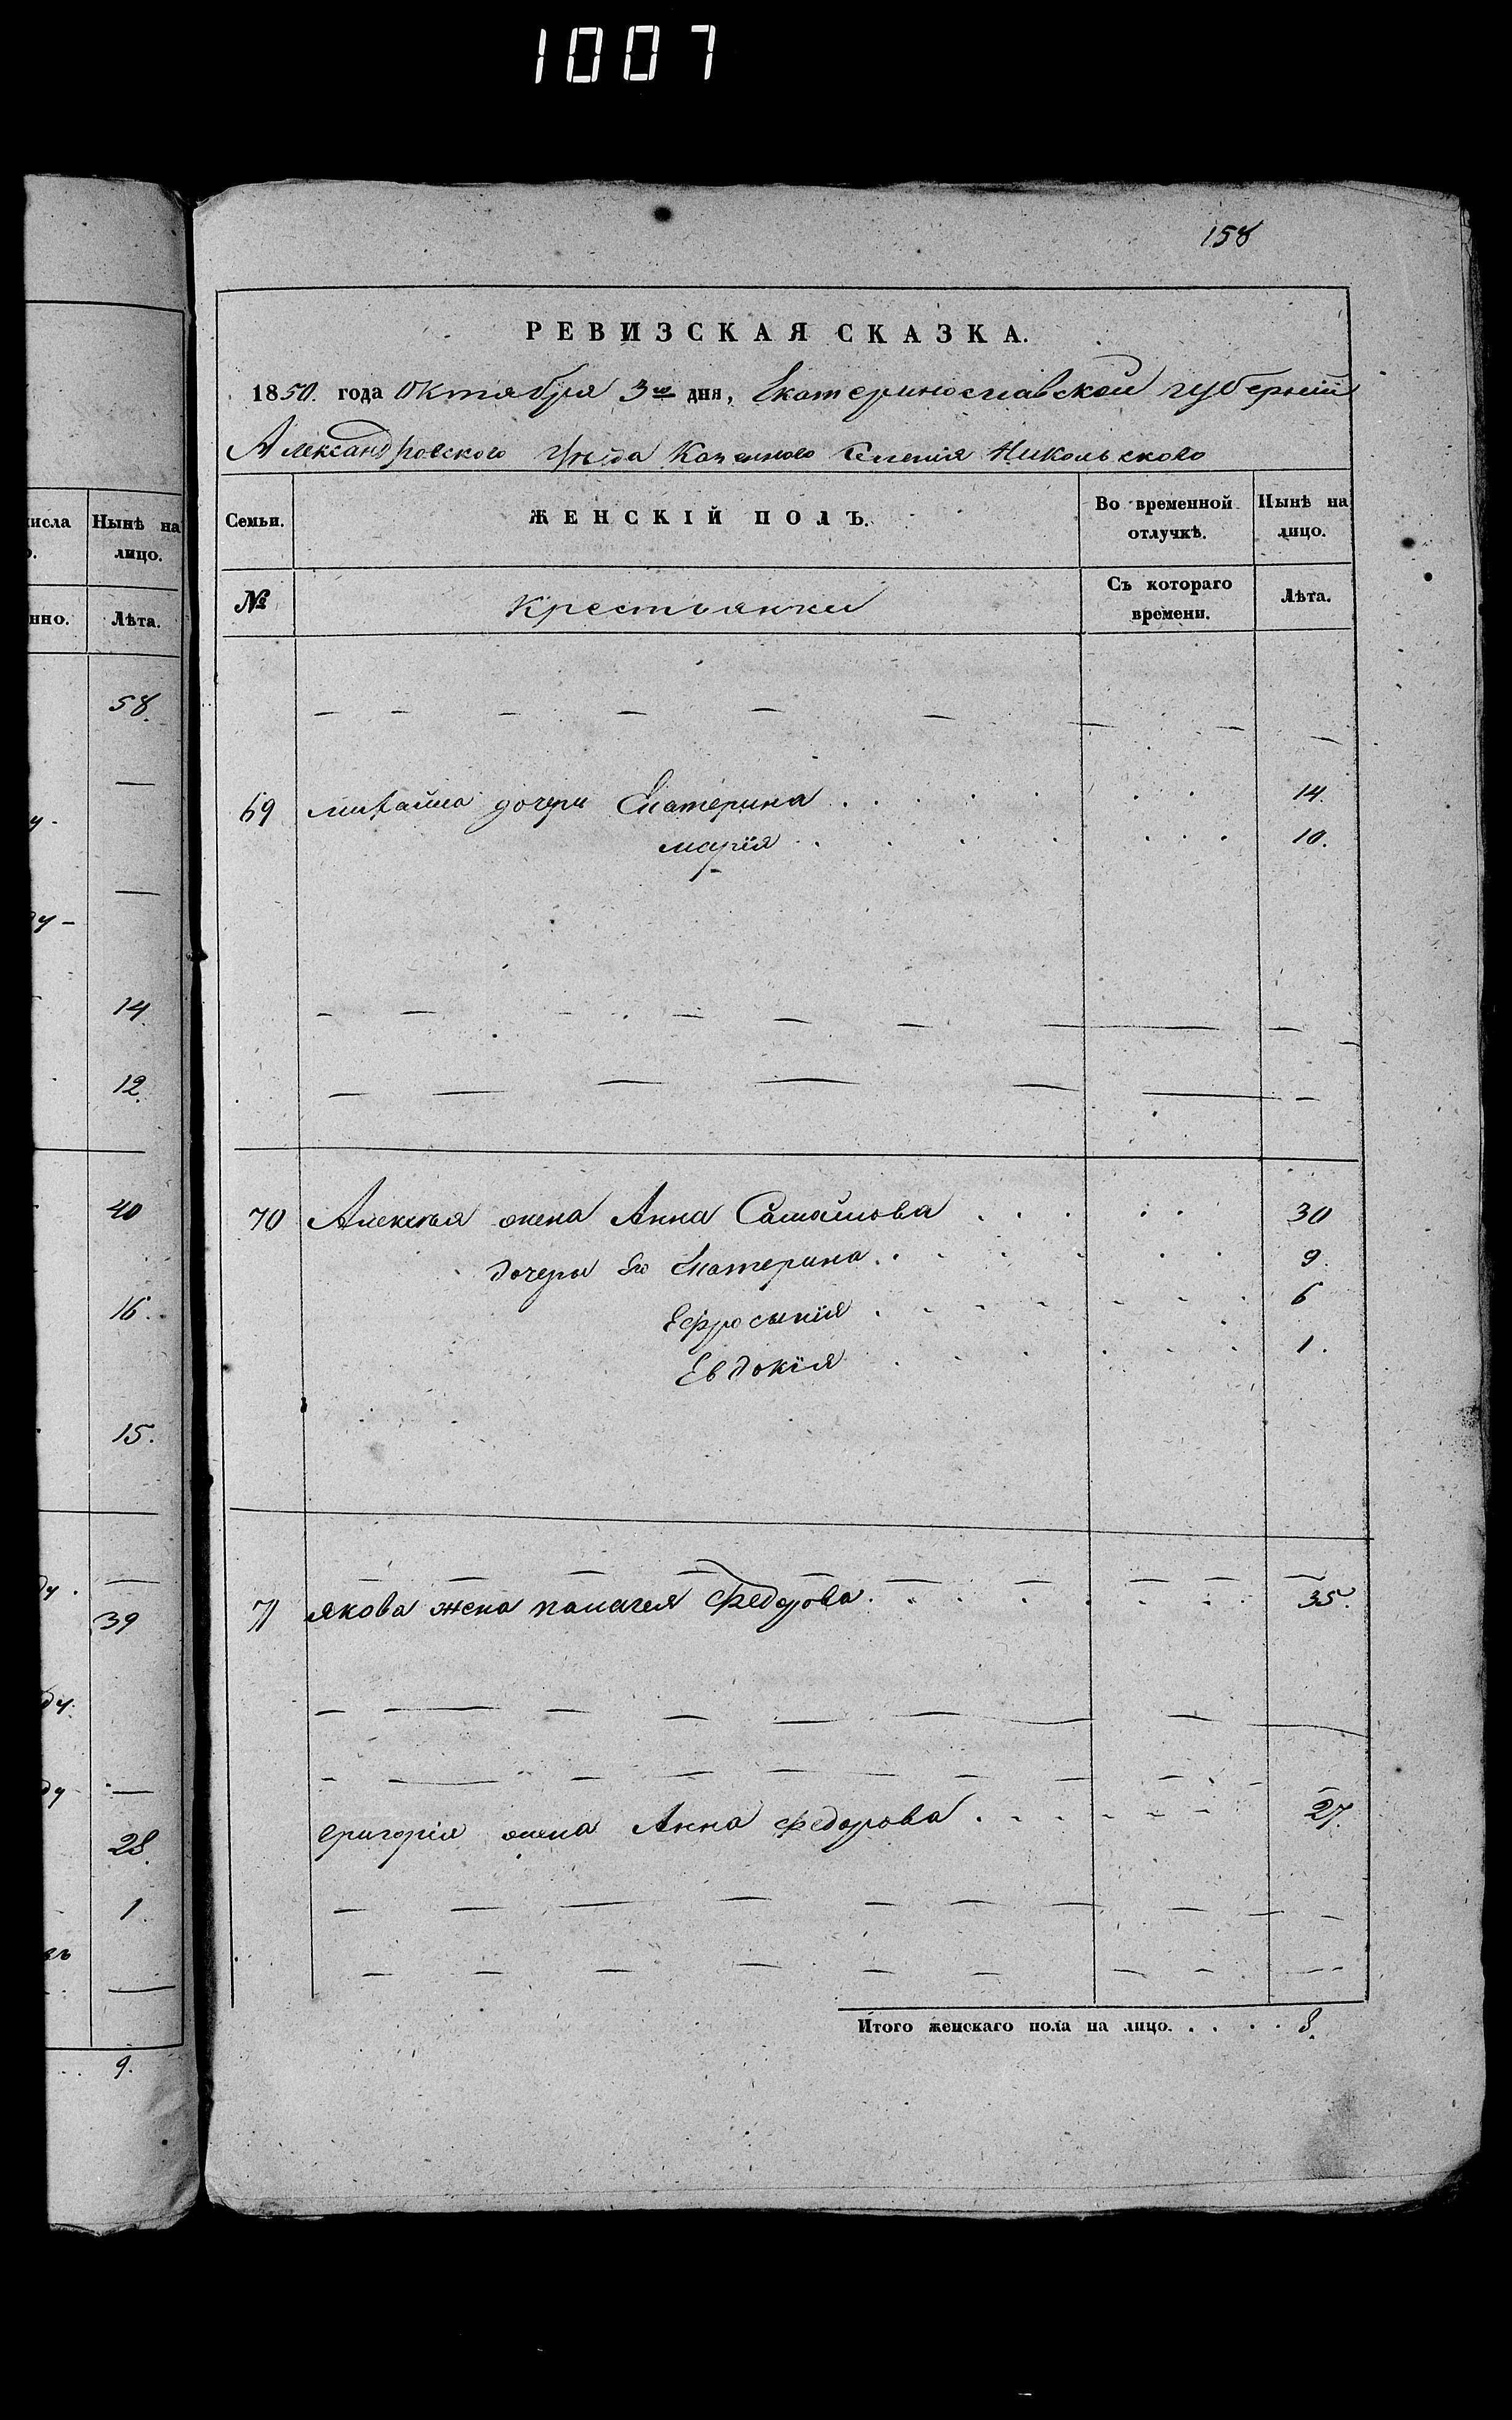 1007
исла
Нынѣ на
о.
лицо.
нно.
Лѣта.
58.
у.
ду
14
12.
40
16.
15.
ду.
39
ду.
ду
28.
1.
9.
158
РЕВИЗСКАЯ СКАЗКА.
1850. года Октября 3го дня, Екатеринославской губерніи
Александровского уѣзда Казенного Селенія Никольского
Семьи.
ЖЕНСКІЙ ПОЛЪ.
Во временной отлучкѣ.
Нынѣ на лицо.
№
Крестьянки
Съ котораго времени.
Лѣта.
69 михайла дочери Екатерина 14.
марія 10.
70 Алексѣя жена Анна Самойлова 30
дочери его Екатерина 9.
Ефросинія 6
Евдокія 1.
71 якова жена палагея Федорова 35.
григорія жена Анна федорова 27.
Итого женскаго пола на лицо 8.